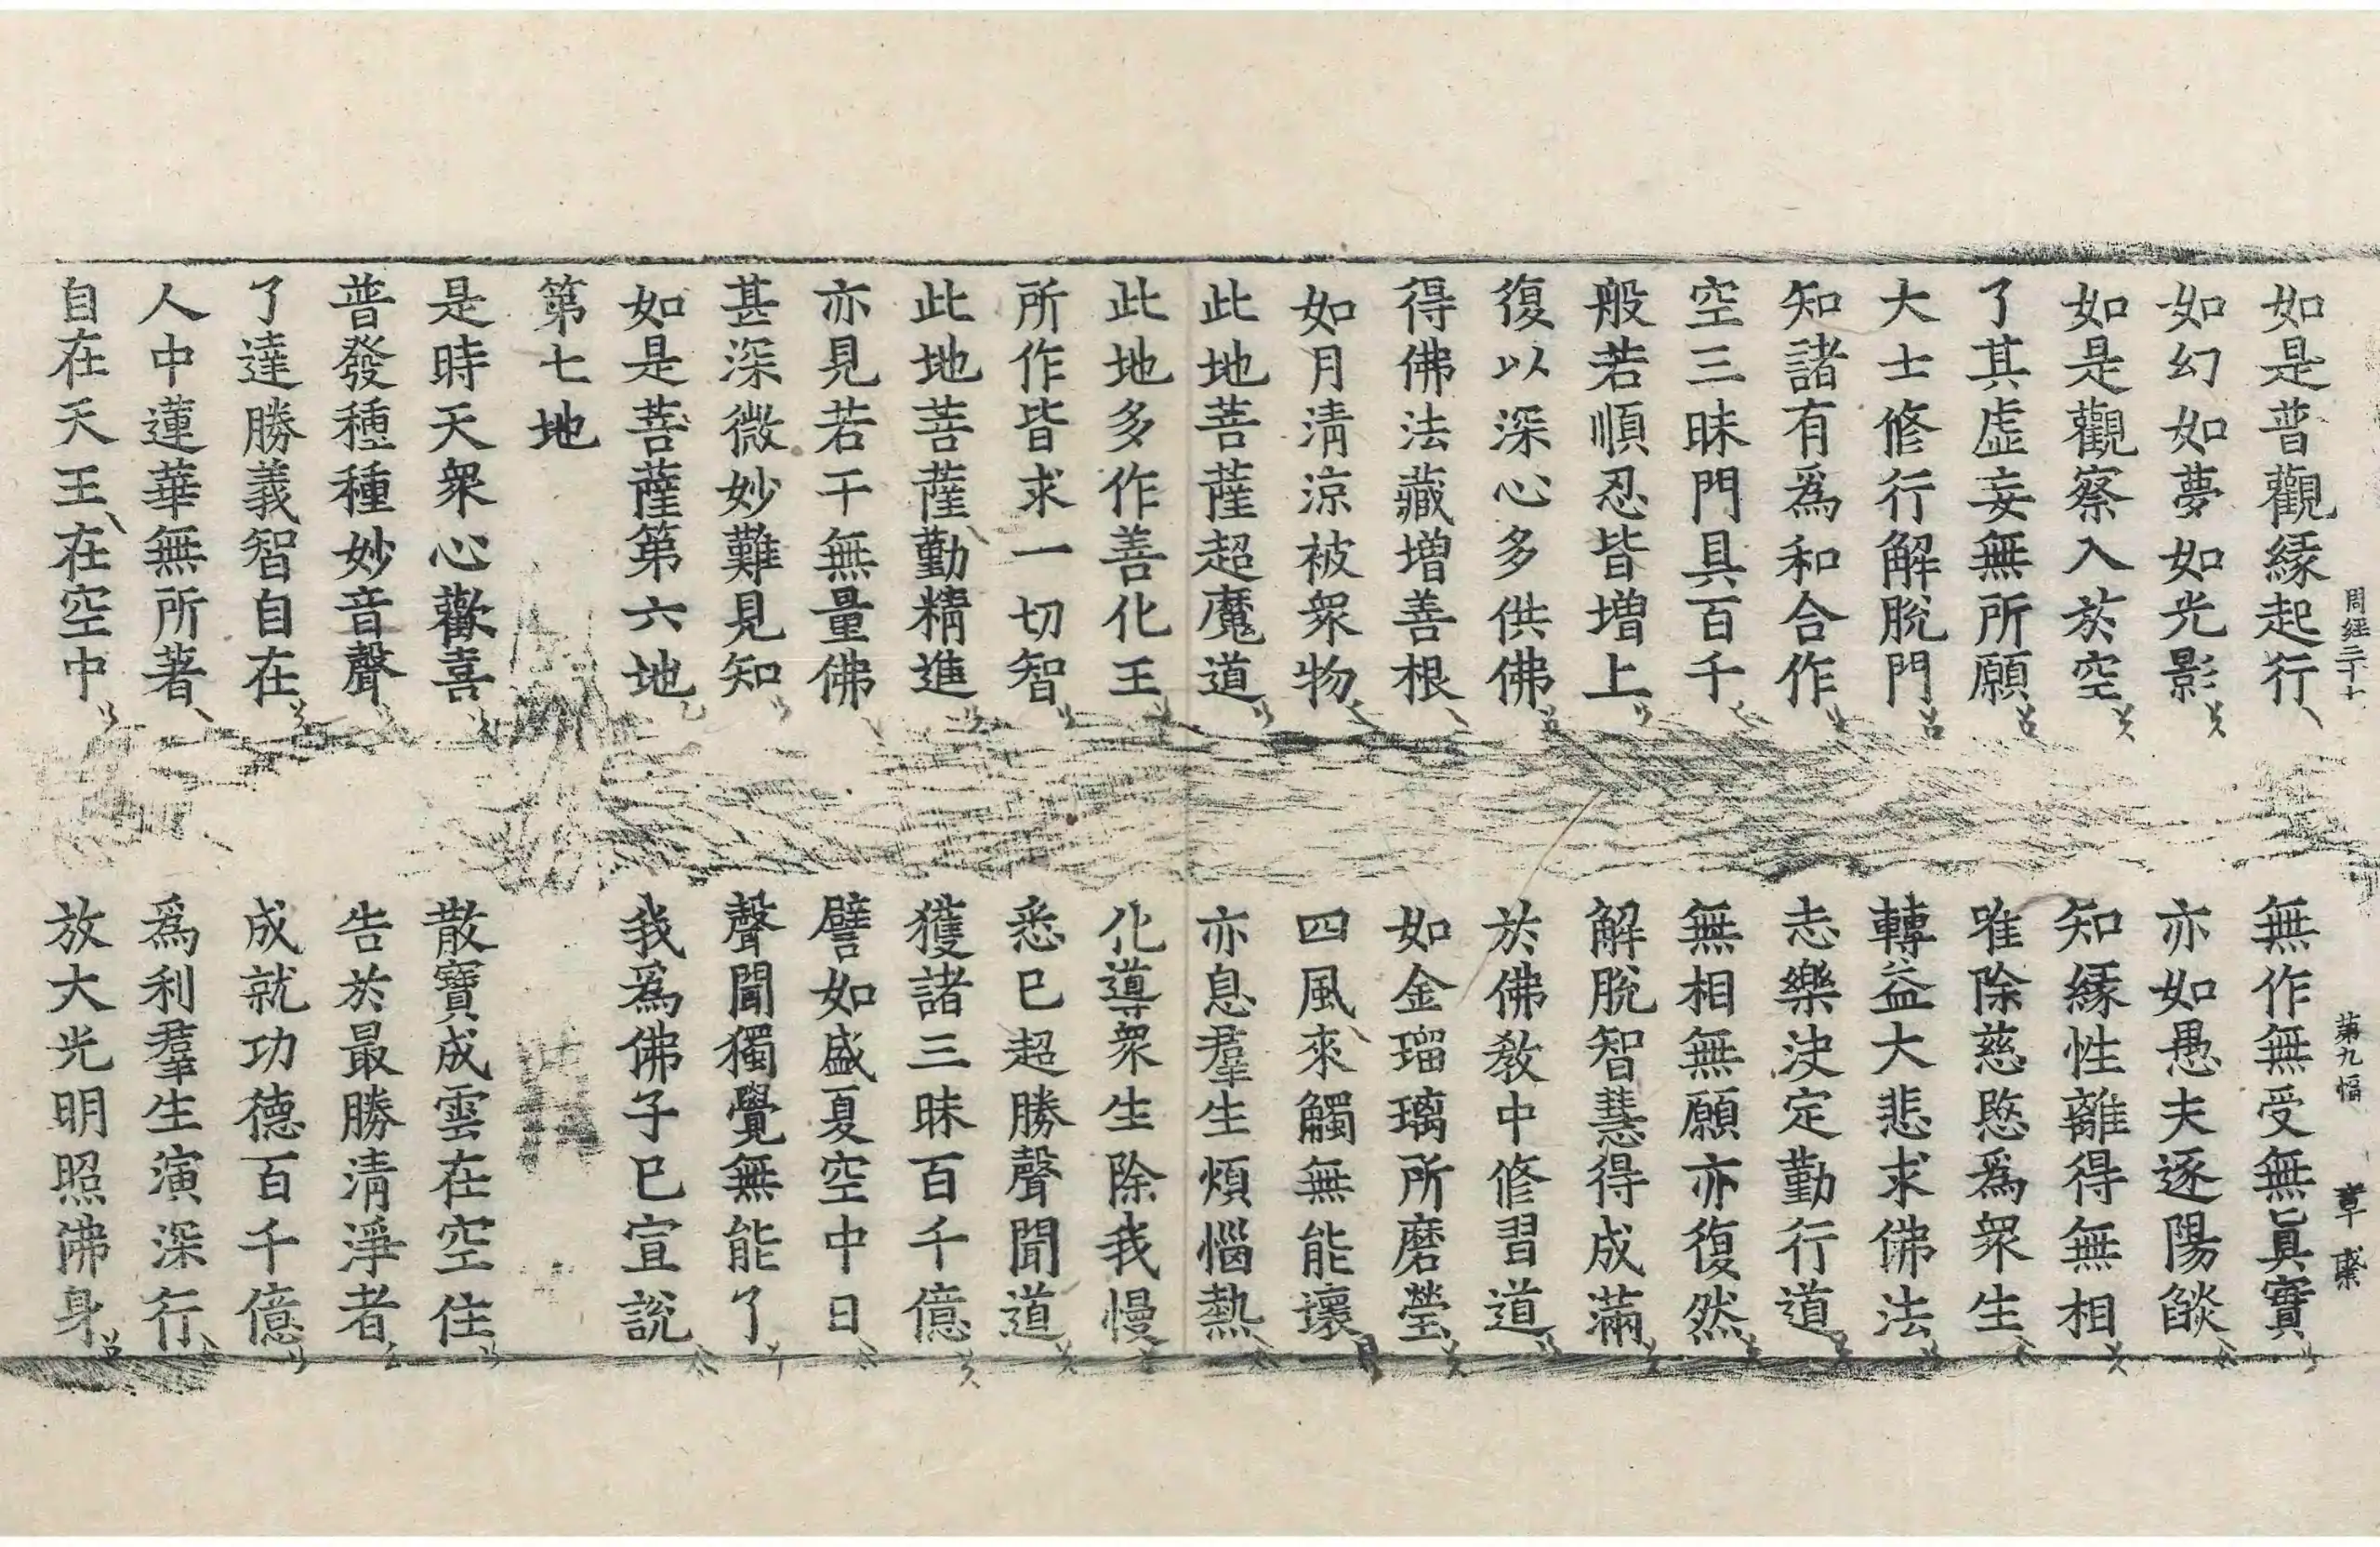 周經三十七 第九幅 章 
如是普觀緣起行 無作無受無眞實
如幻如夢如光影 亦如愚夫逐陽燄
如是觀察入於空 知緣性離得無相
了其虛妄無所願 唯除慈愍爲衆生
大士修行解脫門 轉益大悲求佛法
知諸有爲和合作 志樂決定勤行道
空三昧門具百千 無相無願亦復然
般若順忍皆增上 解脫智慧得成滿
復以深心多供佛 於佛敎中修習道
得佛法藏增善根 如金瑠璃所磨瑩
如月清涼被衆物 四風來觸無能壞
此地菩薩超魔道 亦息羣生煩惱熱
此地多作善化王 化導衆生除我慢
所作皆求一切智 悉已超勝聲聞道
此地菩薩勤精進 獲諸三昧百千億
亦見若干無量佛 譬如盛夏空中日
甚深微妙難見知 聲聞獨覺無能了
如是菩薩第六地 我爲佛子已宣說
第七地
是時天衆心歡喜 散寶成雲在空住
普發種種妙音聲 告於最勝清淨者
了達勝義智自在 成就功德百千億
人中蓮華無所著 爲利羣生演深行
自在天王在空中 放大光明照佛身